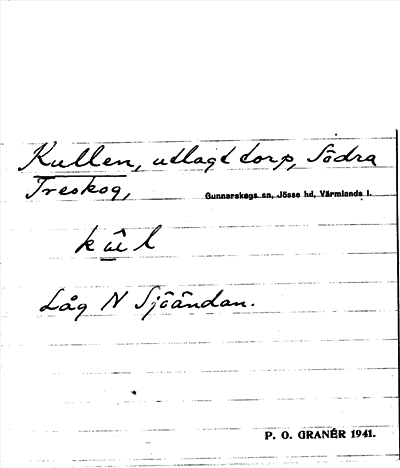 Kullen, utlagt torp, Södra
Treskog, Gunnarskogs sn, Jösse hd, Värmlands l.
kûl
Låg N Sjöändan.
P. O. GRANÉR 1941.